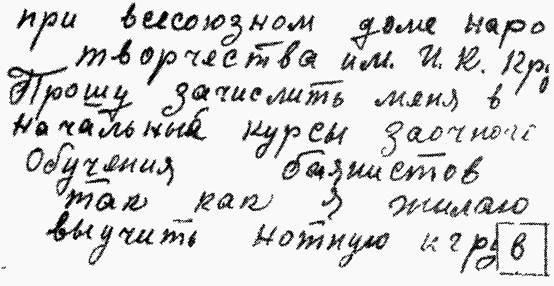 при всесоюзном доме наро
творчества им. И. К. Кру
Прошу зачислить меня в
начальный курсы заочного
Обучения баянистов
так как я жилаю
выучить нотную к гру в